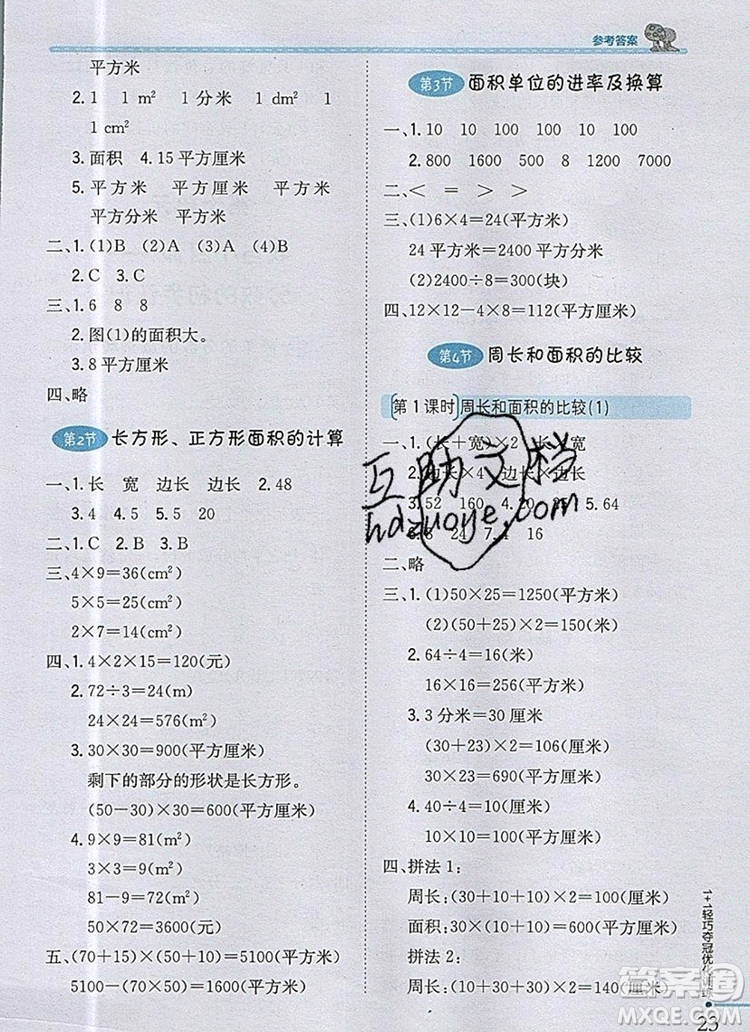 参考答案
平方米
2.1 1 m² 1 分米 1 dm² 1
1 cm²
3.面积 4.15 平方厘米
5.平方米 平方厘米 平方厘米
平方分米 平方米
二、1.(1)B (2)A (3)A (4)A
2.C 3.B
三、1.6 8 8
2.图(1)的面积大。
3.8 平方厘米
四、略
第2节 长方形、正方形面积的计算
一、1.长 宽 边长 边长 2.48
3.4 4.5 5 20
二、1.C 2.B 3.B
三、4×9=36(cm²)
5×5=25(cm²)
2×7=14(cm²)
四、1.4×2×15=120(元)
2.72÷3=24(m)
24×24=576(m²)
3.30×30=900(平方厘米)
剩下的部分的形状是长方形。
(50-30)×30=600(平方厘米)
4.9×9=81(m²)
3×3=9(m²)
81-9=72(m²)
50×72=3600(元)
五、(70+15)×(50+10)=5100(平方厘米)
5100-(70×50)=1600(平方厘米)
第3节 面积单位的进率及换算
一、1.10 10 100 100 10 100
2.800 1600 500 8 1200 7000
二、< = > < >
三、(1)6×4=24(平方米)
24 平方米=2400 平方分米
(2)2400÷8=300(块)
四、12×12-4×8=112(平方厘米)
第4节 周长和面积的比较
第 1 课时 周长和面积的比较(1)
一、1.(长+宽)×2 长×宽
2.边长×4 边长×边长
3.52 160 4.20 25 5.64
8 4 16
二、略
三、1.(1)50×25=1250(平方米)
(2)(50+25)×2=150(米)
2.64÷4=16(米)
16×16=256(平方米)
3.3 分米=30 厘米
(30+23)×2=106(厘米)
30×23=690(平方厘米)
4.40÷4=10(厘米)
10×10=100(平方厘米)
四、拼法 1:
周长:(30+10+10)×2=100(厘米)
面积:(10+10)×30=600(平方厘米)
拼法 2:
周长:(30+30+10)×2=140(厘米)
互助文档
hdzuoye.com
1+1轻巧夺冠优化训练
23
答案圈
MXQE.COM